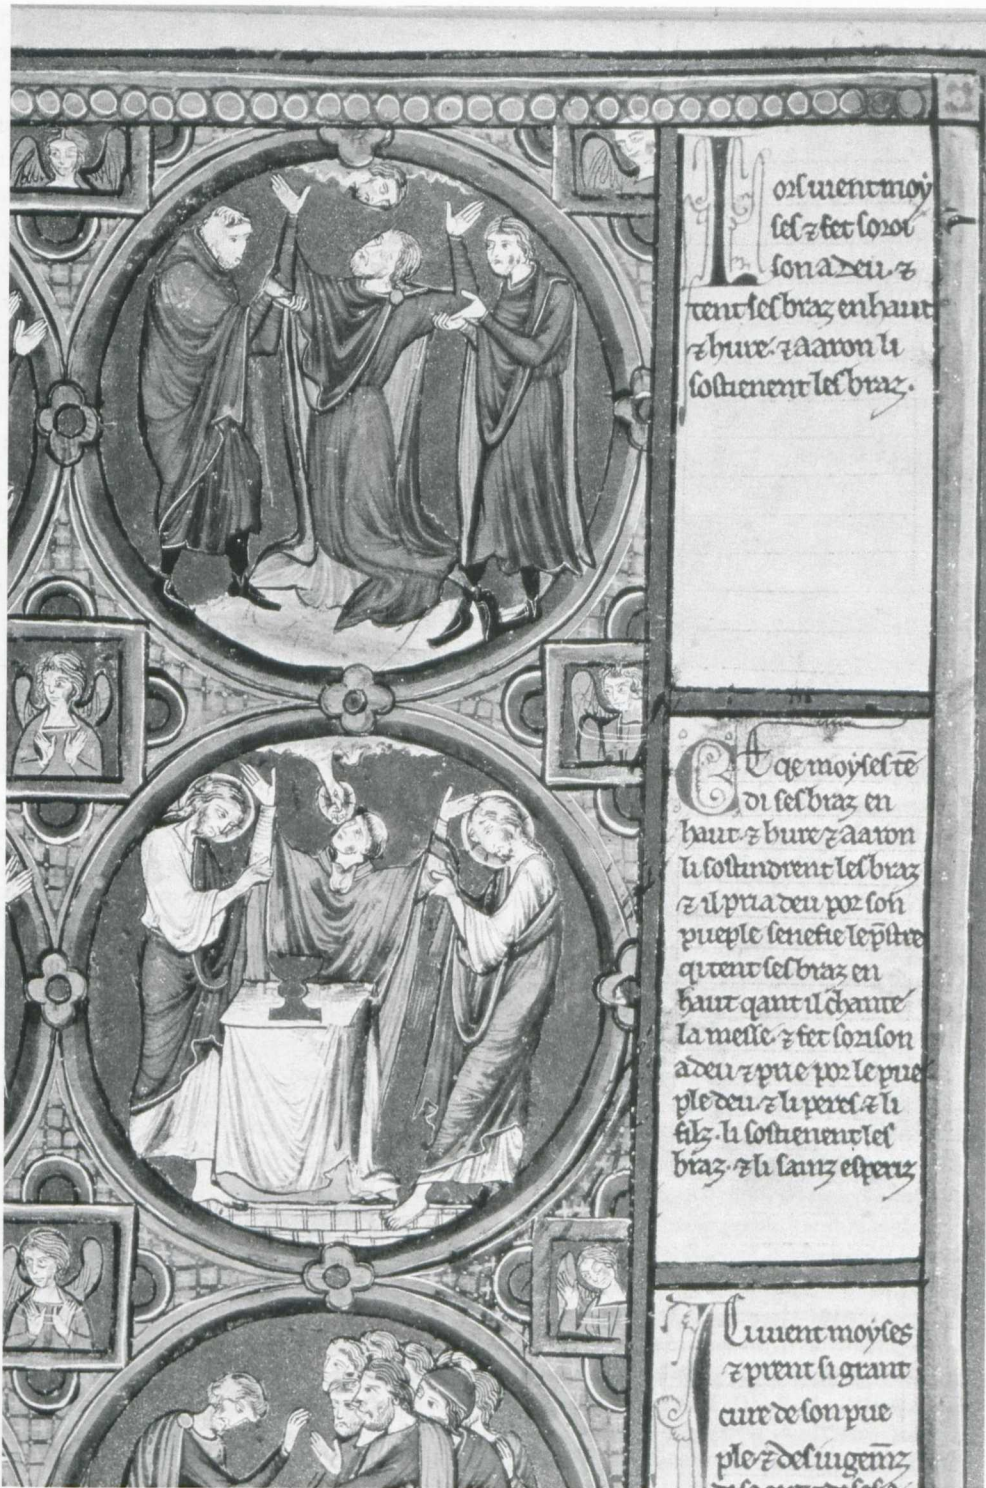 Lors vient moy
ses ⁊ fet soroi
son a deu· ⁊
tent ses braz en haut
⁊ hure· ⁊ aaron li
sostienent les braz·
Ce qe moyses tē
di ses braz en
haut· ⁊ hure ⁊ aaron
li sostindrent les braz
⁊ il pria deu por son
pueple senefie le p̄stre
qi tent ses braz en
haut qant il chante
la messe· ⁊ fet sorison
a deu ⁊ prie por le pue
ple deu· ⁊ li peres ⁊ li
filz· li sostienent les
braz· ⁊ li sainz esperiz
Ici vient moyses
⁊ prent si grant
cure de son pue
ple ⁊ des iugem̄z